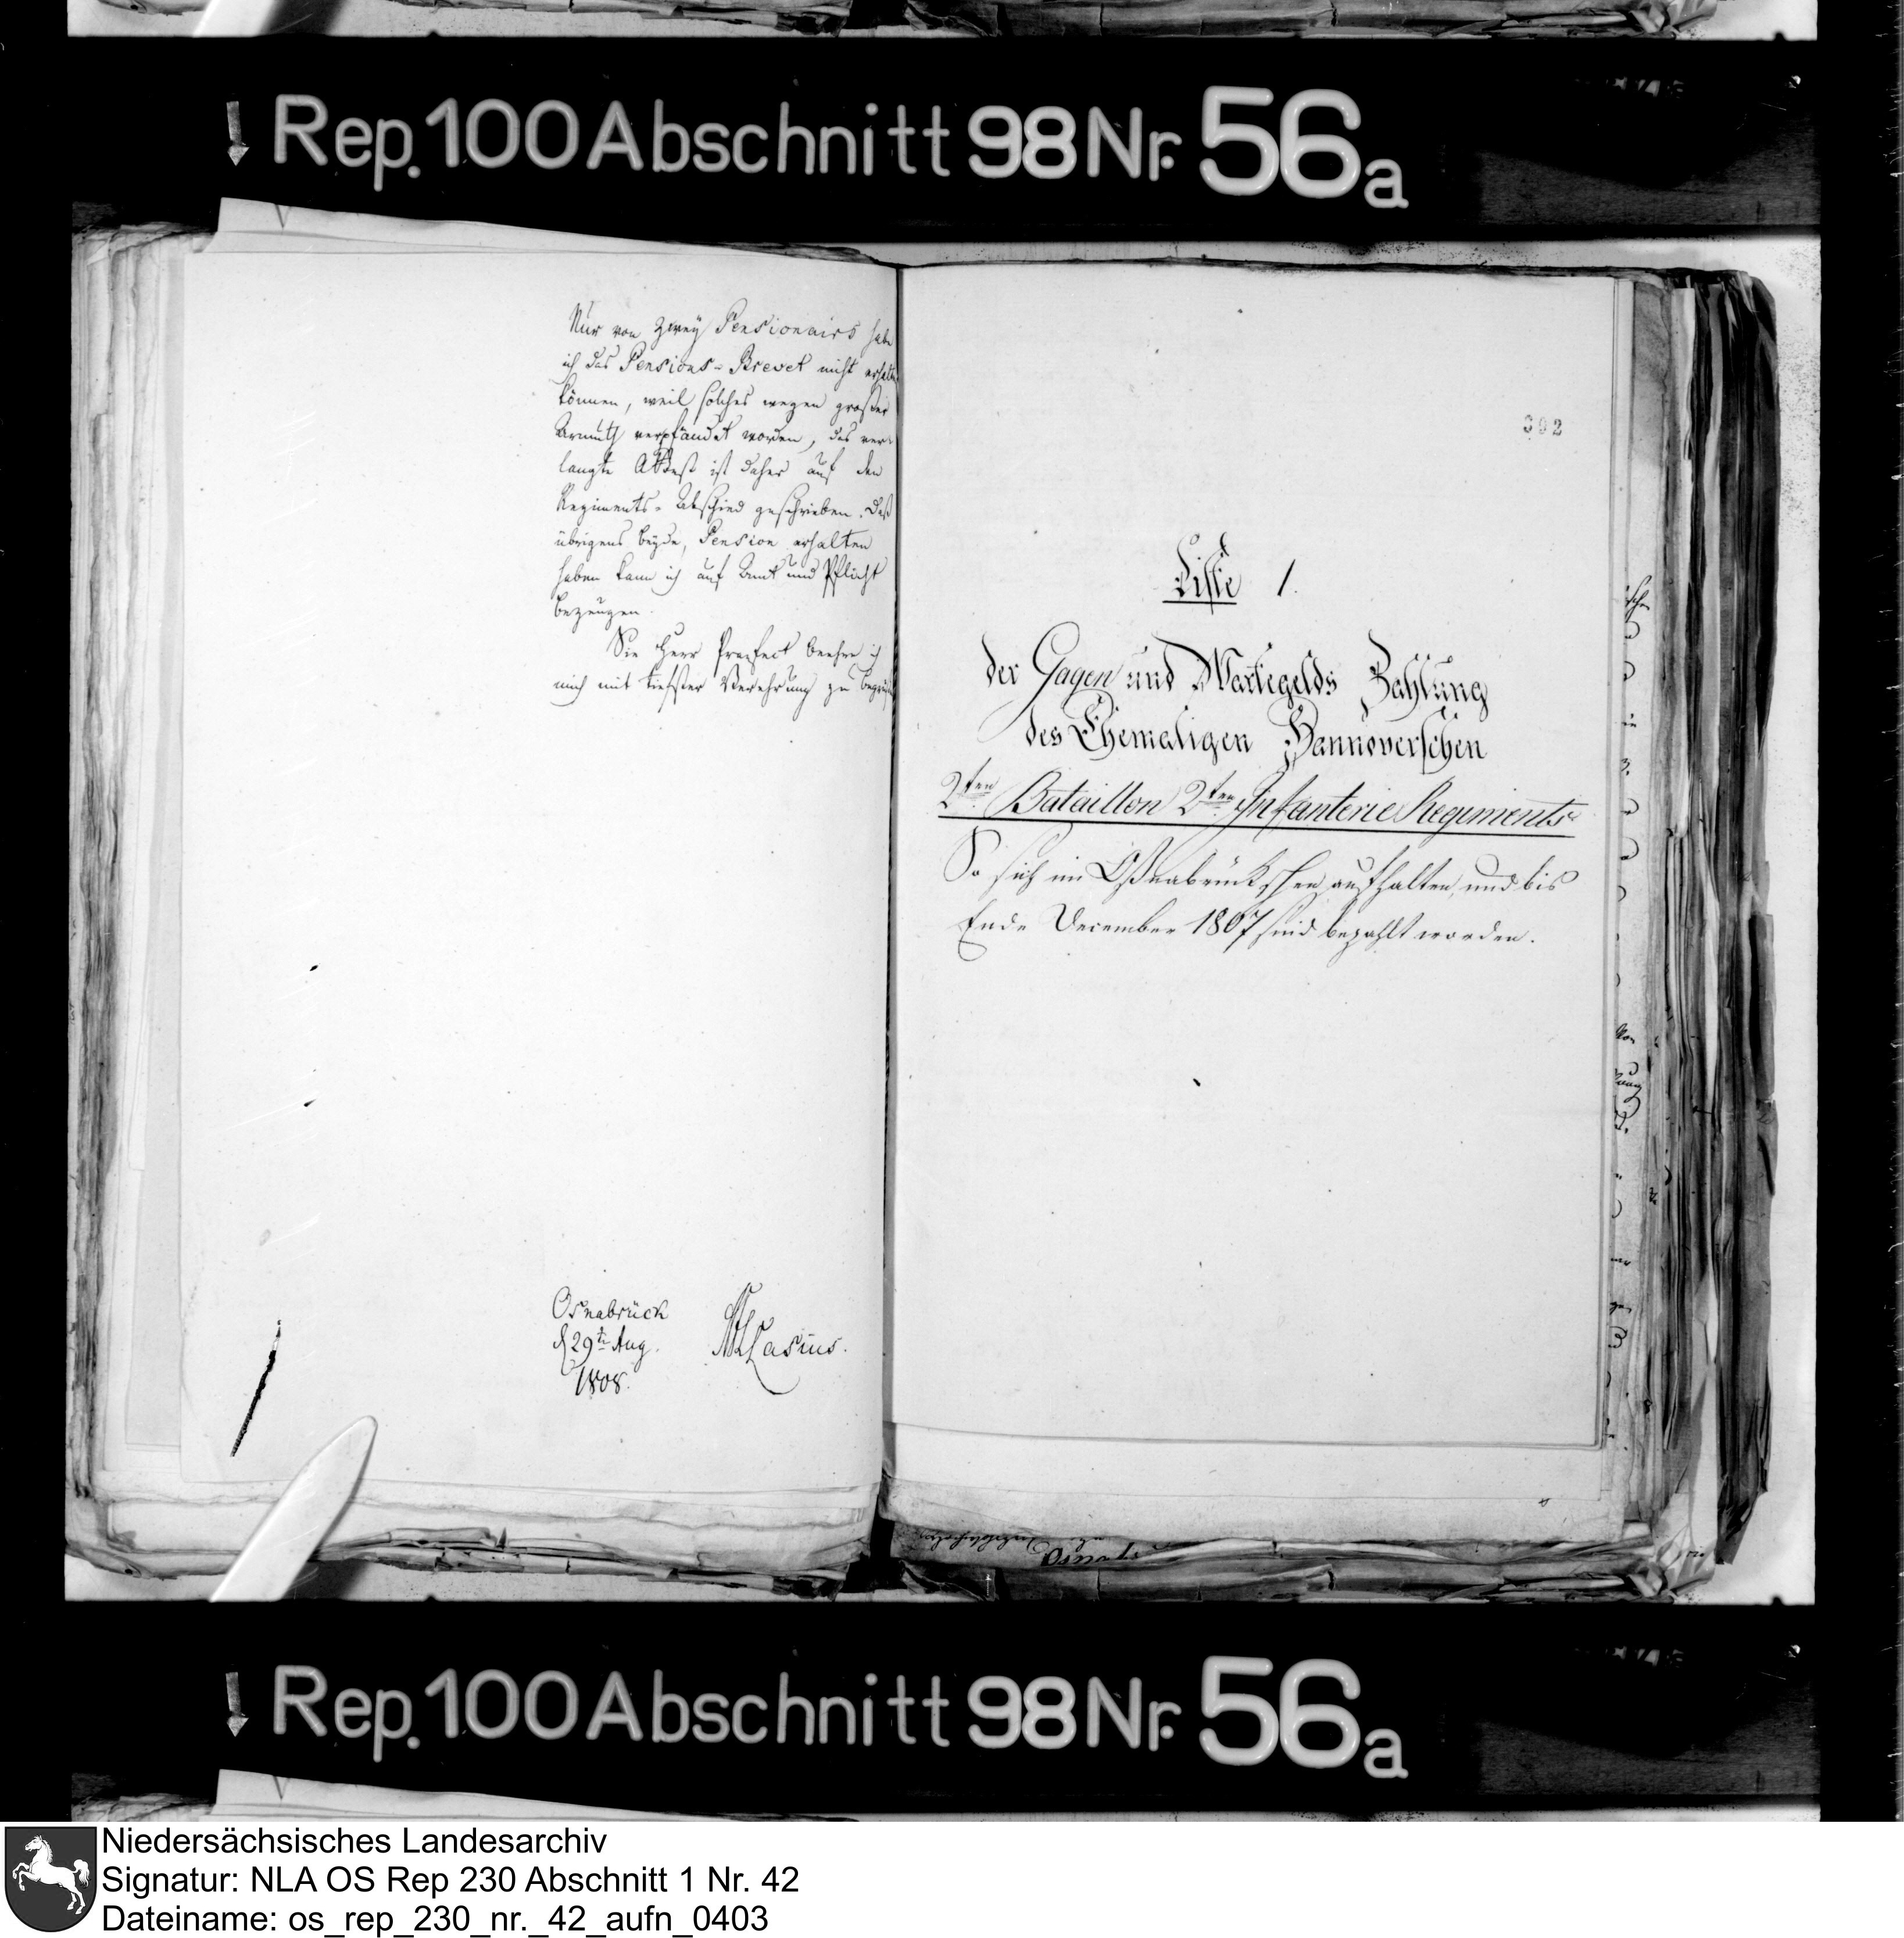 Rep. 100 Abschnitt 98 Nr. 56a
Nur von zwey Pensionairs habe
ich das Pensions-Brevet nicht erhalten
können, weil solches wegen großer
Armuth verpfändet worden, das ver-
langte Attest ist daher auf den
Regiments-Abschied geschrieben. Daß
übrigens beyde, Pension erhalten
haben kann ich auf Amt und Pflicht
bezeugen.
Sie Herr Praefect beehre ich
mich mit tiefster Verehrung zu
Osnabrück
d 29t Aug.
1808.
392
Liste 1.
der Gagen und Wartegelds Zahlung
des Ehemaligen Hannoverschen
2ten Bataillon 2ten Infanterie Regiments
So sich im Oßnabrückschen aufhalten, und bis
Ende December 1807 sind bezahlt worden.
Rep. 100 Abschnitt 98 Nr. 56a
Niedersächsisches Landesarchiv
Signatur: NLA OS Rep 230 Abschnitt 1 Nr. 42
Dateiname: os_rep_230_nr._42_aufn_0403